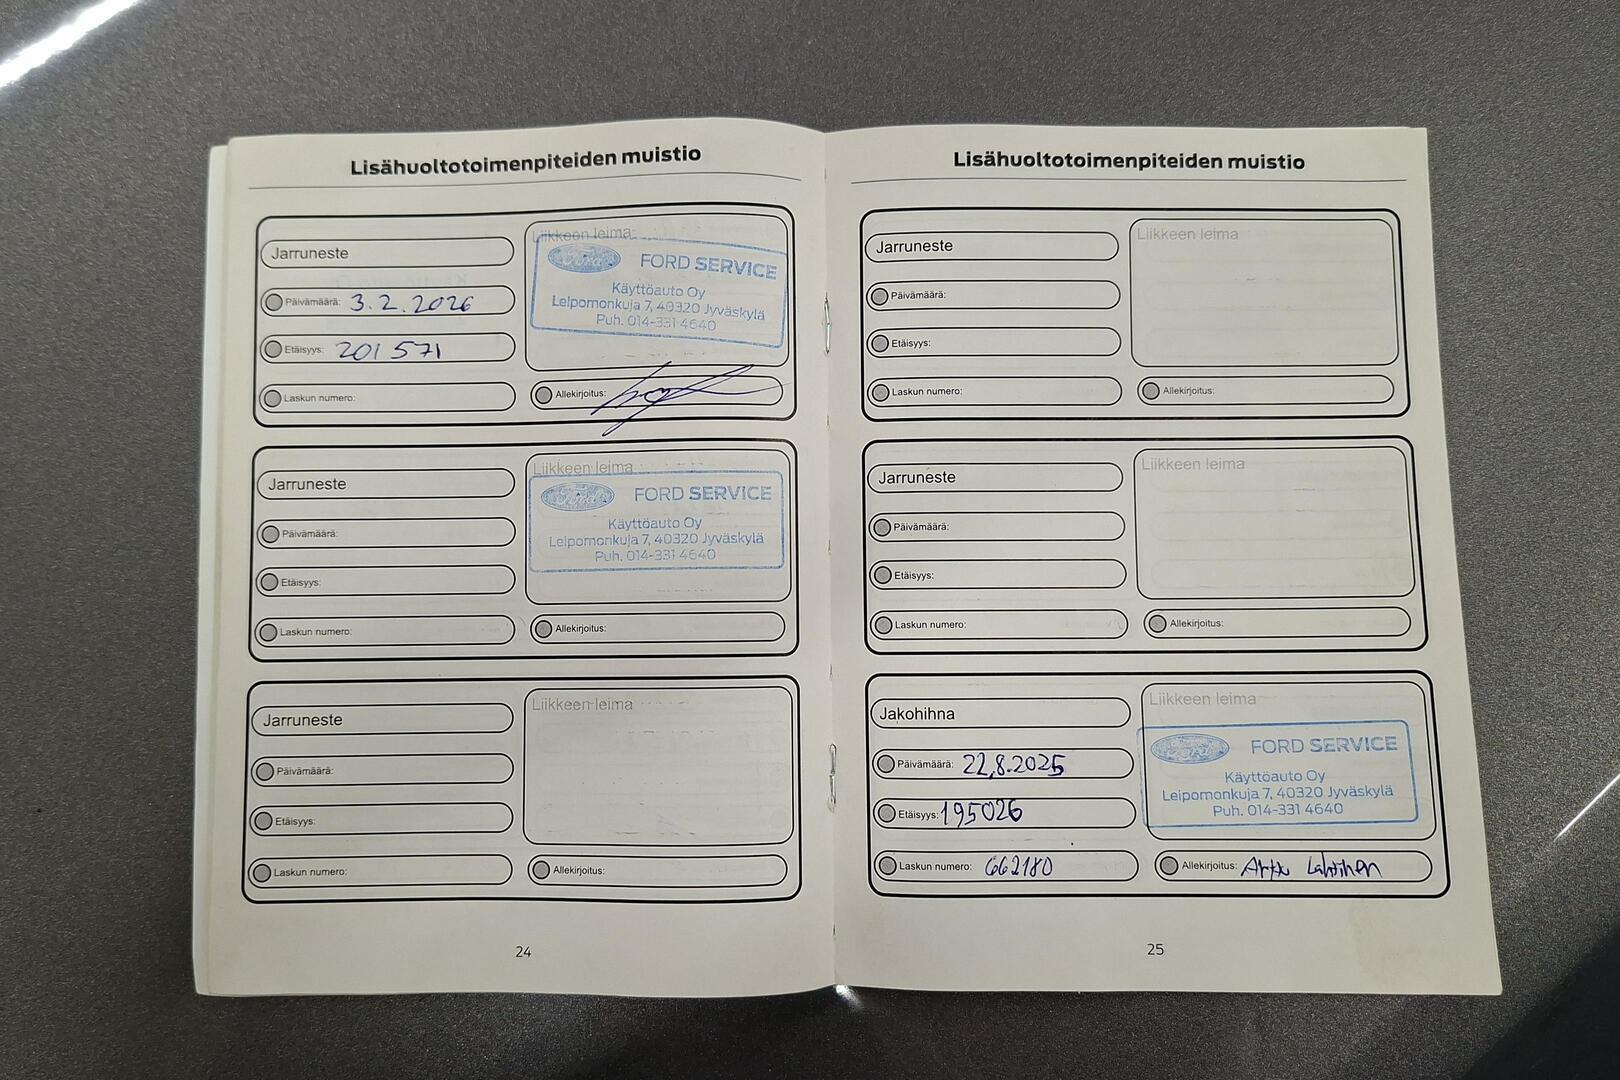 Lisähuoltotoimenpiteiden muistio
Jarruneste
Päivämäärä: 3.2.2026
Etäisyys: 201 571
Laskun numero:
Liikkeen leima
Ford FORD SERVICE
Käyttöauto Oy
Leipomonkuja 7, 40320 Jyväskylä
Puh. 014-331 4640
Allekirjoitus:
Jarruneste
Päivämäärä:
Etäisyys:
Laskun numero:
Liikkeen leima
Ford FORD SERVICE
Käyttöauto Oy
Leipomonkuja 7, 40320 Jyväskylä
Puh. 014-331 4640
Allekirjoitus:
Jarruneste
Päivämäärä:
Etäisyys:
Laskun numero:
Liikkeen leima
Allekirjoitus:
24
Lisähuoltotoimenpiteiden muistio
Jarruneste
Päivämäärä:
Etäisyys:
Laskun numero:
Liikkeen leima
Allekirjoitus:
Jarruneste
Päivämäärä:
Etäisyys:
Laskun numero:
Liikkeen leima
Allekirjoitus:
Jakohihna
Päivämäärä: 22.8.2025
Etäisyys: 195026
Laskun numero: 662180
Liikkeen leima
Ford FORD SERVICE
Käyttöauto Oy
Leipomonkuja 7, 40320 Jyväskylä
Puh. 014-331 4640
Allekirjoitus: Lahtinen
25